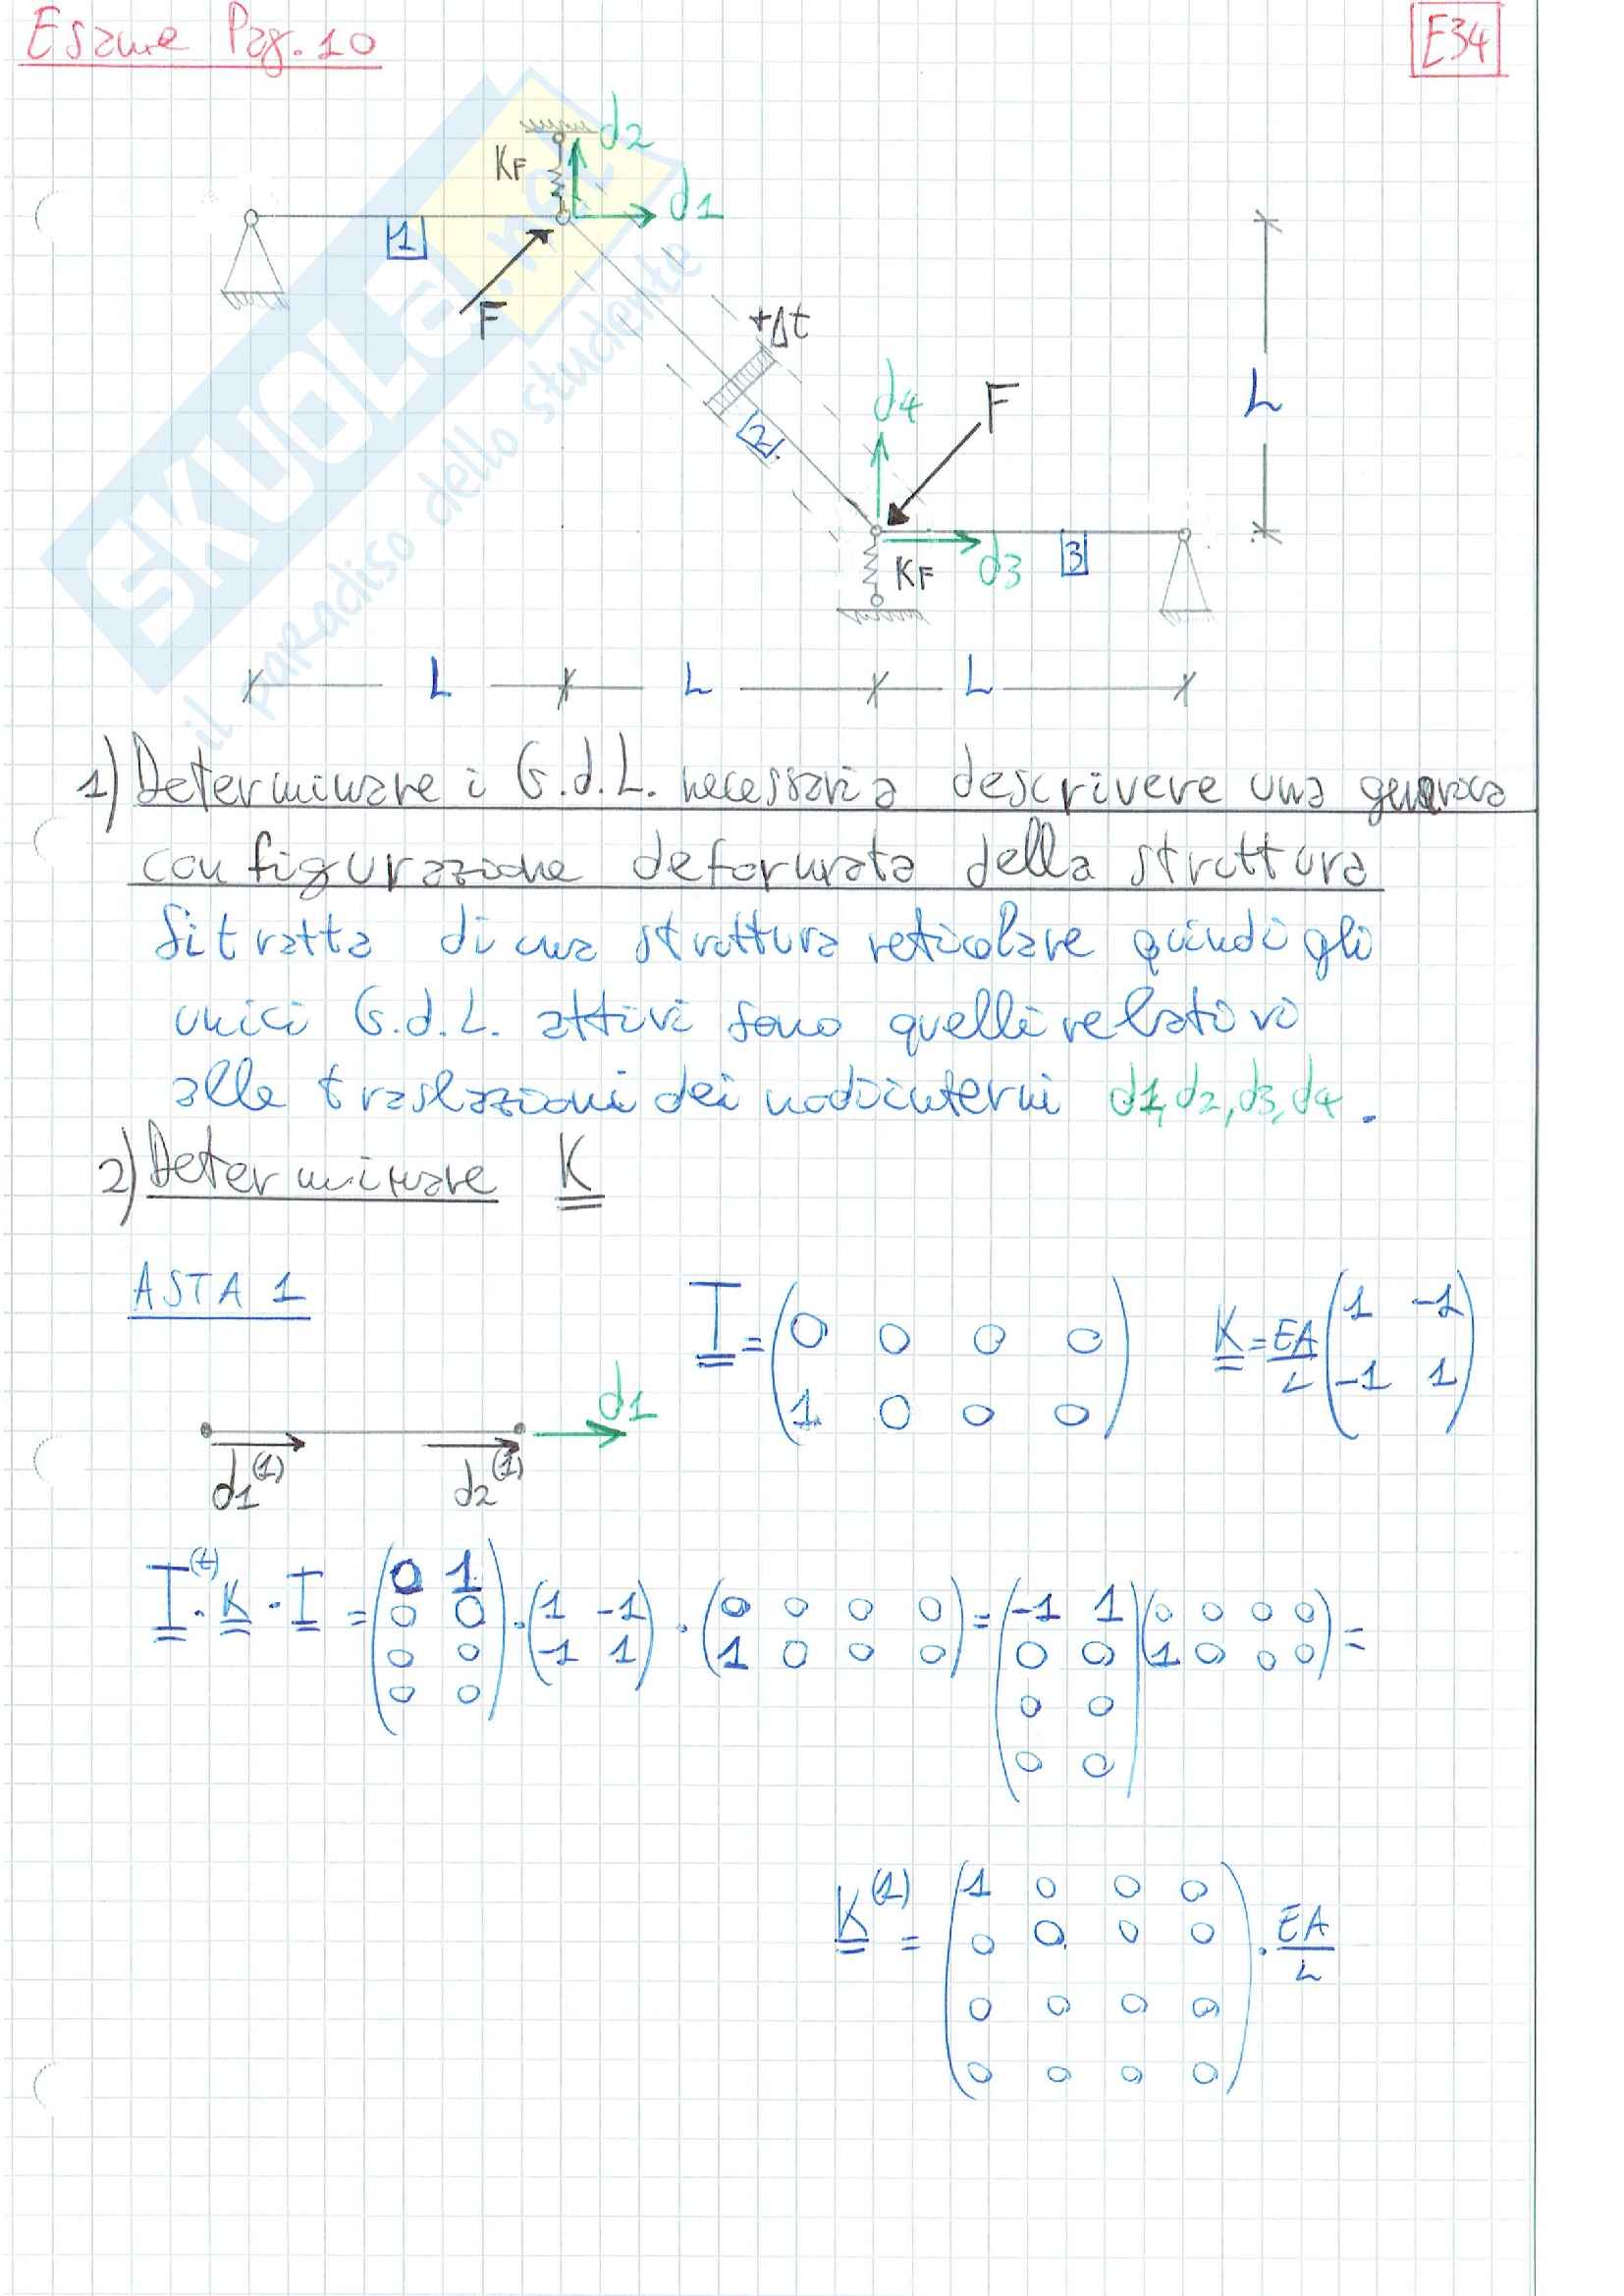 Esame Pag. 10
E34
d2
KF
d1
1
F
+Δt
2
d4
F
L
d3
KF
3
SKUOLA.net
il paradiso dello studente
L L L
1) Determinare i G.d.L. necessari a descrivere una generica
configurazione deformata della struttura
Si tratta di una struttura reticolare quindi gli
unici G.d.L. attivi sono quelli relativi
alle traslazioni dei nodi interni d1, d2, d3, d4.
2) Determinare K
ASTA 1
T = (0 0 0 0
1 0 0 0)
K = EA/L (1 -1
-1 1)
d1
d1(1) d2(1)
T(t) · K · T = (0 1
0 0
0 0
0 0) · (1 -1
-1 1) · (0 0 0 0
1 0 0 0) = (-1 1
0 0
0 0
0 0) (0 0 0 0
1 0 0 0) =
K(1) = (1 0 0 0
0 0 0 0
0 0 0 0
0 0 0 0) · EA/L